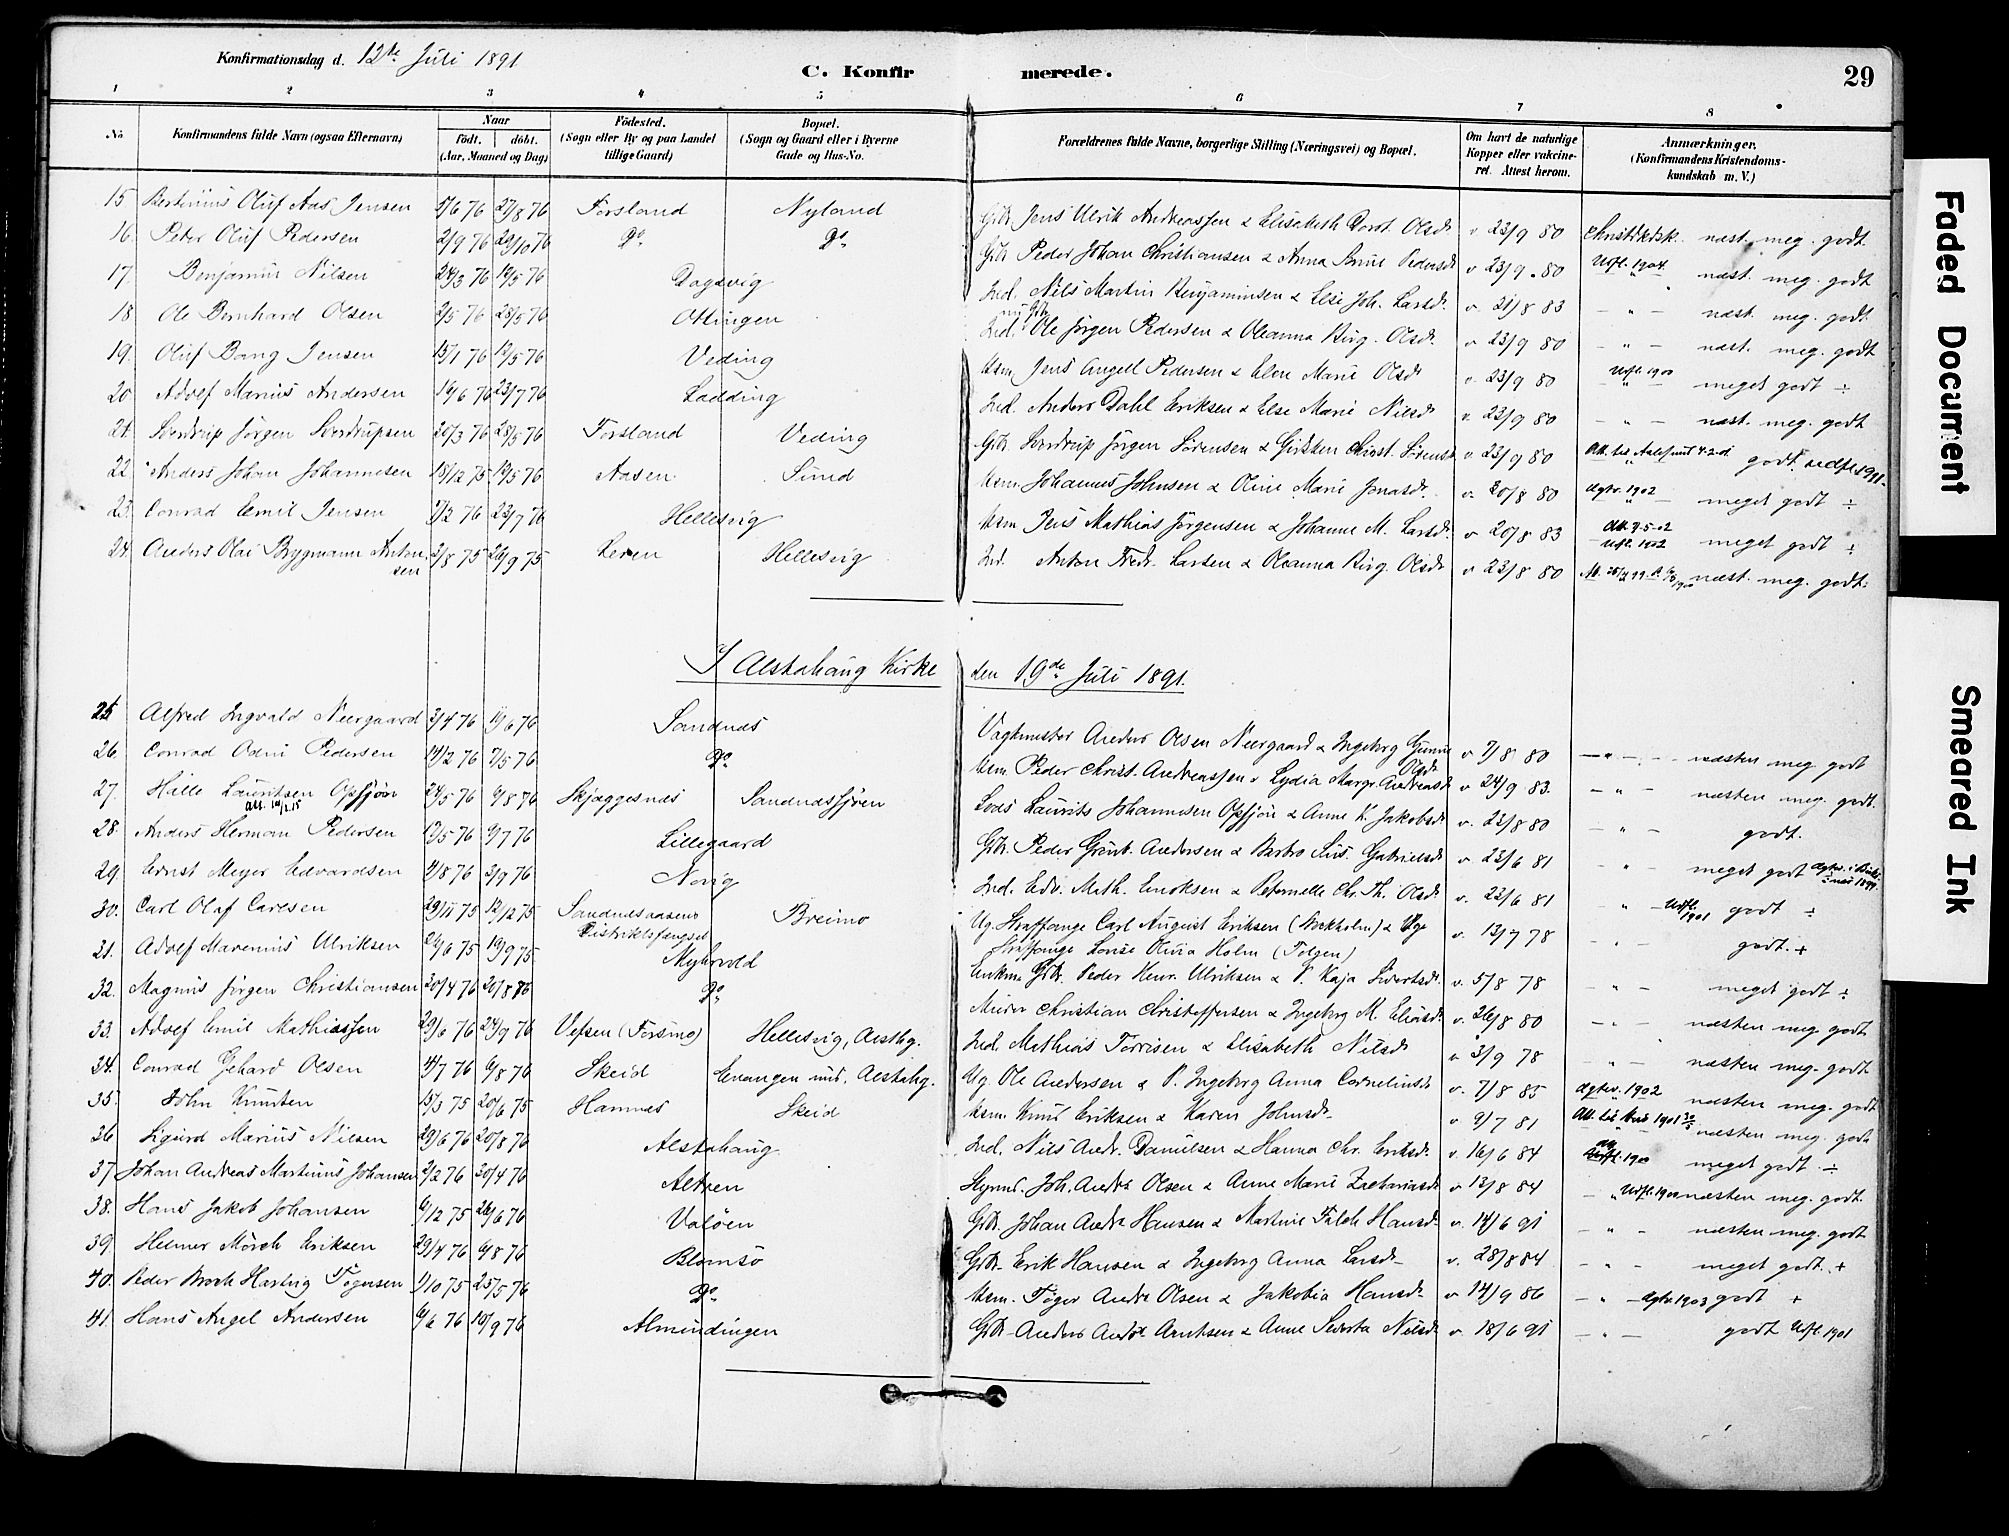 Konfirmationsdag d. 12te Juli 1891
C. Konfirmerede.
29
1 2 3 4 5 6 7 8
No
Konfirmandens fulde Navn (ogsaa Efternavn)
Naar
født. døbt.
(Aar, Maaned og Dag)
Fødested.
(Sogn eller By og paa Landet tillige Gaard)
Bopæl.
(Sogn og Gaard eller i Byerne Gade og Hus-No.
Forældrenes fulde Navne, borgerlige Stilling (Næringsvei) og Bopæl.
Om havt de naturlige Kopper eller vakcineret. Attest herom.
Anmærkninger.
(Konfirmandens Kristendomskundskab m. V.)
15 Bertinius Oluf Aas Jensen /6 76 27/8 76 Forsland Nyland Gbr. Jens Ulrik Andreassen & Elisabeth Dorot. Olsdr v 23/9 80 Christdksk. næst. meg. godt
16. Peter Oluf Pedersen 2/9 76 29/10 76 Do. Do. Gbr Peder Johan Christiansen & Anna Pedersdr v 23/9 80 Udfl. 1904. næst. meg. godt
17. Benjamin Nilsen 24/3 76 /5 76 Dagsvig Ind. Nils Martin Benjaminsen & Else Joh. Larsdr. v. 21/8 83 - " - næst. meg. godt.
18 Ole Bernhard Olsen 3/5 76 28/5 76 Ottingen Ind. Ole Jørgen Pedersen & Oleanna Birg. Olsdr. v 23/9 80 - " - næst. meg. godt
19. Oluf Bang Jensen 15/1 76 12/5 76 Veding Hsm. Jens Angell Pedersen & Elen Marie Olsdr v. 23/9 80 Udfl. 1900 meget godt ÷
20 Adolf Marius Andersen 16/6 76 23/7 76 Ladding Ind. Anders Dahl Eriksen & Else Marie Nilsdr v. 23/9 80 - " - næst. meg. godt
21. Sverdrup Jørgen Sverdrupsen 20/3 76 28/5 76 Forsland Veding Gbr. Sverdrup Jørgen Sørensen & Christ. v. 23/9 80 Att. til Aalesund 4-2-01 godt. udfl. 1901.
22. Anders Johan Johannesen 18/12 75 /5 76 Aasen Sund Hsm. Johannes Johnsen & Oline Marie Jonasdr. v. 20/8 80 dgtv. 1902 meget godt ÷
23. Conrad Emil Jensen /2 76 23/7 76 Hellesvig Hsm. Jens Mathias Jørgensen & Johanne M. Larsdr. v 20/8 83 Att. 9-5-02 Udfl. 1902 meget godt ÷
24. Anders Olai Brygmann Antonsen 2/8 75 26/9 75 Leren Hellesvig Ind. Anton Fredr. Larsen & Oleanna Birg. Olsdr v 23/8 80 næst. meg. godt.
I Alstahaug Kirke den 19de Juli 1891.
25 Alfred Ingvald Neergaard 3/4 76 11/6 76 Sandnes Vagtmester Anders Olsen Neergaard & Ingeborg Olsdr v 7/8 80 - " - næsten meg. godt
26. Conrad Odin Pedersen 14/2 76 7/5 76 Do. Hsm. Peder Christ. Andreassen & Lydia Margr. Andreasdr v 24/9 83. - " - næsten meg. godt.
27. Hille Lauritsen Opsjøn 24/5 76 6/8 76 Skjæggesnes Sandnessjøen Lods Laurits Johannesen Opsjøn & Anne K. Jakobsdr v. 23/8 80 - " - godt.
28. Anders Herman Pedersen /5 76 9/7 76 Lillegaard Gbr. Peder Andersen & Barbro Sus. Gabrielsdr v. 23/6 81 - " - meget godt
29. Ernst Meyer Edvardsen /8 76 3/9 76 Novig Ind. Edv. Math. Eriksen & Peternelle Chr. Th. Olsdr v. 23/6 81 - " - Udfl. 1901 godt ÷
30. Carl Olaf Carlsen 29/11 75 12/12 75 Sandnesaasens Distriktsfængsel Breimo Ug. Straffange Carl August Eriksen (Stokholm) & Ug. Straffange Lovise Olivia Holm (Tolgen) v. 13/7 78 - " - godt. +
31. Adolf Marenius Ulriksen 26/6 75 19/9 75 Myhrvold Enkm. Gbr. Peder Henr. Ulriksen & P. Kaja Sivertsdr. v. 5/8 78 - " - meget godt ÷
32. Magnus Jørgen Christiansen 20/4 76 20/8 76 Do. Murer Christian Christoffersen & Ingeborg M. Eliasdr. v. 26/8 80 - " - næsten meg. godt
33. Adolf Emil Mathiassen 29/6 76 24/9 76 Vefsen (Forsmo) Hellesvig, Alsthg. Ind. Mathias Torrisen & Elisabeth Nilsdr v 3/9 78 - " - næsten meg. godt
34. Conrad Gehard Olsen /7 76 6/8 76 Skeid Alstahg. Ug. Ole Andersen & P. Ingeborg Anna Corneliusdr v. 7/8 85 dgtv. 1902 næsten meg. godt
35. John Knutsen 15/3 75 20/6 75 Hamnes Skeid Hsm. Knut Eriksen & Karen Johnsdr. v 9/7 81 næsten meg. godt
36. Sigurd Marius Nilsen 29/6 76 20/8 76 Alstahaug Ind. Nils Andr. Danielsen & Hanna Chr. Eriksdr. v. 16/6 84 1900 meget godt. ÷
37. Johan Andreas Martinus Johansen 2/2 76 30/4 76 Altren Joh. Andr. Olsen & Anne Marie Zachariasdr v 13/8 84 - " Udfl. 1900 næsten meg. godt.
38. Hans Jakob Johansen 6/12 75 26/6 76 Valøen Gbr. Johan Andr. Hansen & Martine Falch Hansdr. v. 14/6 91 - " - næsten meg. godt
39. Helmer Mørch Eriksen 29/4 76 6/8 76 Blomsø Gbr. Erik Hansen & Ingeborg Anna Larsdr v. 28/8 84 - " - meget godt. +
40. Peder Brock Hartvig Tøgersen /10 75 25/5 76 Do. Hsm. Tøger Andr. Olsen & Jakobia Hansdr. v 14/9 86 - " - dgtv. 1903 godt +
41. Hans Angel Andersen 6/6 76 10/9 76 Almindingen Gbr. Anders Andr. Arntsen & Anne Sverta Nilsdr v. 18/6 91 - " - godt Udfl. 1901
Faded Document
Smeared Ink